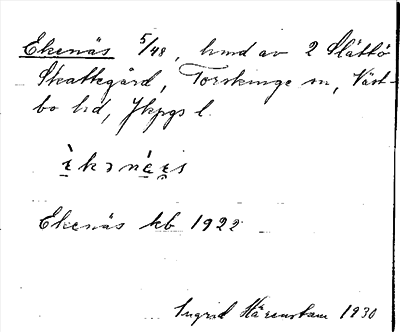 Ekenäs 5/48, hmd av 2 Slättö
Skattegård, Torskinge sn, Väst-
bo hd, Jkpgs l.
Ekenäs kb 1922
Ingrid Härenstam 1930